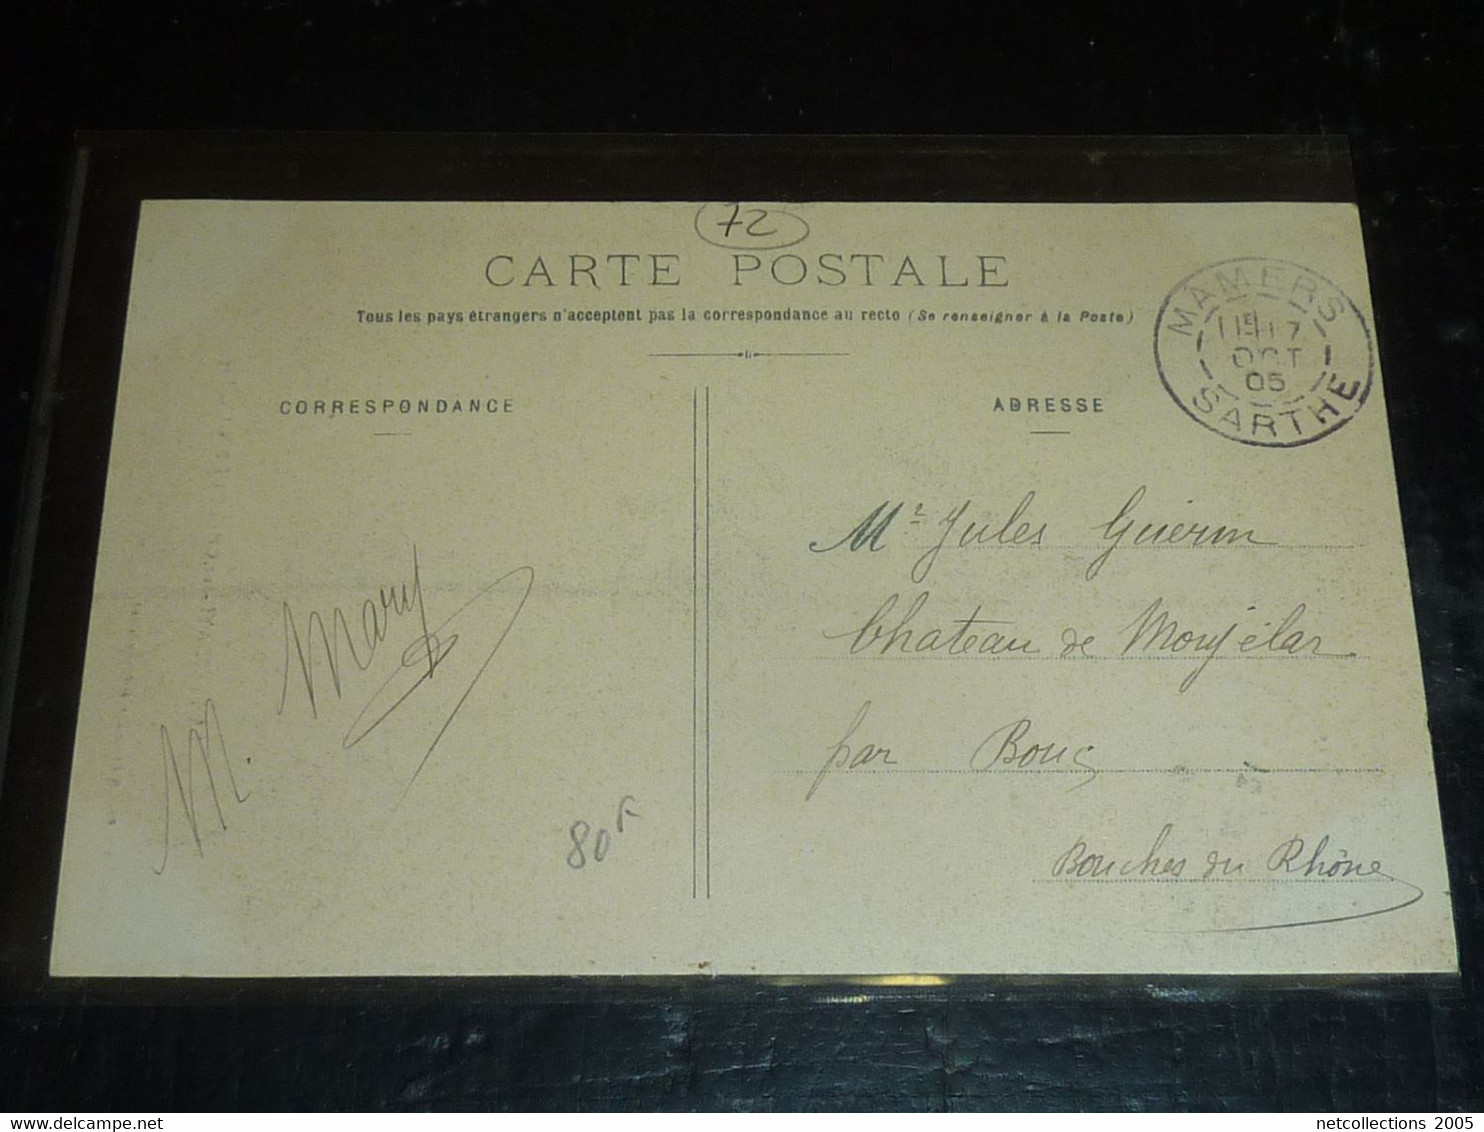 72
CARTE POSTALE
Tous les pays étrangers n'acceptent pas la correspondance au recto (Se renseigner à la Poste)
CORRESPONDANCE
ADRESSE
MAMERS
17
OCT
05
SARTHE
Mr Jules Guerin
Chateau de Monjélar
par Bouc
Bouches du Rhône
M. Mary
80F
netcollections 2005